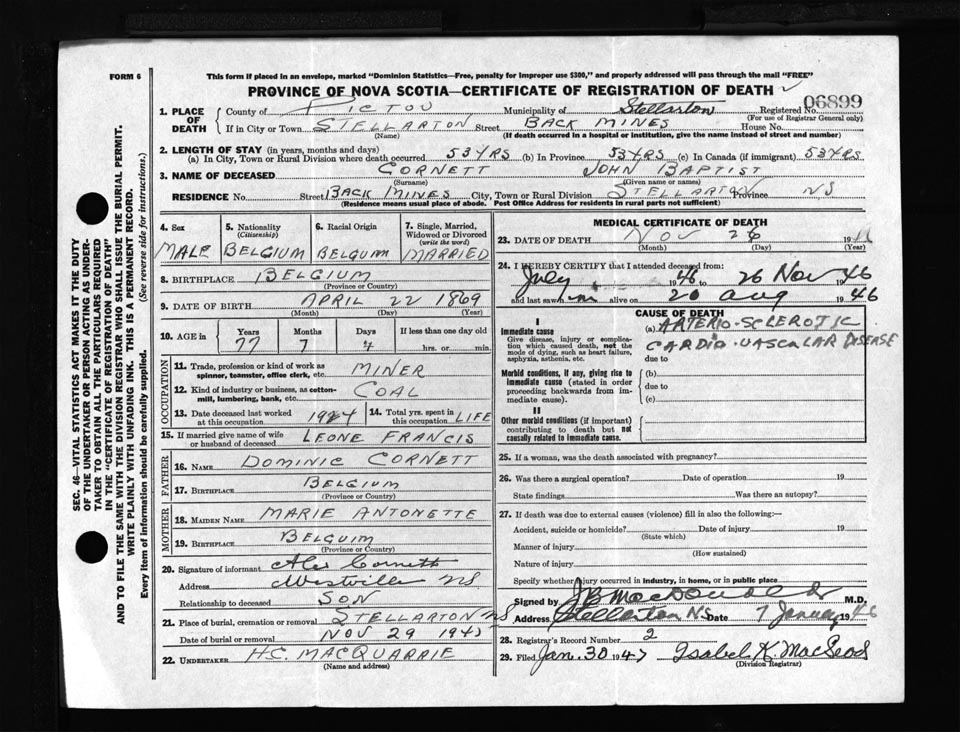 FORM 6
This form if placed in an envelope, marked "Dominion Statistics—Free, penalty for improper use $300," and properly addressed will pass through the mail "FREE"
PROVINCE OF NOVA SCOTIA—CERTIFICATE OF REGISTRATION OF DEATH
1. PLACE OF DEATH
County of PICTOU Municipality of Stellarton Registered No. 06899
(For use of Registrar General only)
If in City or Town STELLARTON Street BACK MINES House No.
(Name) (If death occurred in a hospital or institution, give the name instead of street and number)
2. LENGTH OF STAY (in years, months and days)
(a) In City, Town or Rural Division where death occurred 53 YRS (b) In Province 53 YRS (c) In Canada (if immigrant) 53 YRS
3. NAME OF DECEASED CORNETT JOHN BAPTIST
(Surname) (Given name or names)
RESIDENCE No. Street BACK MINES City, Town or Rural Division STELLARTON Province NS
(Residence means usual place of abode. Post Office Address for residents in rural parts not sufficient)
4. Sex MALE
5. Nationality (Citizenship) BELGIUM
6. Racial Origin BELGUIM
7. Single, Married, Widowed or Divorced (write the word) MARRIED
8. BIRTHPLACE BELGIUM
(Province or Country)
9. DATE OF BIRTH APRIL 22 1869
(Month) (Day) (Year)
10. AGE in Years Months Days If less than one day old
77 7 4 hrs. or min.
OCCUPATION
11. Trade, profession or kind of work as spinner, teamster, office clerk, etc. MINER
12. Kind of industry or business, as cotton-mill, lumbering, bank, etc. COAL
13. Date deceased last worked at this occupation 1924
14. Total yrs. spent in this occupation LIFE
15. If married give name of wife or husband of deceased LEONE FRANCIS
FATHER
16. NAME DOMINIC CORNETT
17. BIRTHPLACE BELGIUM
(Province or Country)
MOTHER
18. MAIDEN NAME MARIE ANTONETTE
19. BIRTHPLACE BELGUIM
(Province or Country)
20. Signature of informant Alex Cornett
Address Westville NS
Relationship to deceased SON
21. Place of burial, cremation or removal STELLARTON NS
Date of burial or removal NOV 29 194
22. UNDERTAKER H.C. MACQUARRIE
(Name and address)
MEDICAL CERTIFICATE OF DEATH
23. DATE OF DEATH NOV 26 19
(Month) (Day) (Year)
24. I HEREBY CERTIFY that I attended deceased from:
July 1946 to 26 Nov 1946
and last saw him alive on 20 aug 1946
CAUSE OF DEATH
I
Immediate cause
Give disease, injury or complication which caused death, not the mode of dying, such as heart failure, asphyxia, asthenia, etc.
(a) ARTERIO-SCLEROTIC
CARDIO-VASCULAR DISEASE
due to
Morbid conditions, if any, giving rise to immediate cause (stated in order proceeding backwards from immediate cause)
(b)
due to
(c)
II
Other morbid conditions (if important) contributing to death but not causally related to immediate cause.
25. If a woman, was the death associated with pregnancy?
26. Was there a surgical operation? Date of operation 19
State findings Was there an autopsy?
27. If death was due to external causes (violence) fill in also the following:—
Accident, suicide or homicide? Date of injury 19
(State which)
Manner of injury
(How sustained)
Nature of injury
Specify whether injury occurred in industry, in home, or in public place
Signed by J B MacDonald M.D.
Address Stellarton NS Date 7 January 1946
28. Registrar's Record Number 2
29. Filed Jan. 30 1947 Isabel K. MacLeod
(Division Registrar)
SEC. 46—VITAL STATISTICS ACT MAKES IT THE DUTY
OF THE UNDERTAKER OR PERSON ACTING AS UNDER-
TAKER TO OBTAIN ALL THE PARTICULARS REQUIRED
IN THE "CERTIFICATE OF REGISTRATION OF DEATH"
AND TO FILE THE SAME WITH THE DIVISION REGISTRAR WHO SHALL ISSUE THE BURIAL PERMIT.
WRITE PLAINLY WITH UNFADING INK. THIS IS A PERMANENT RECORD.
Every item of information should be carefully supplied. (See reverse side for instructions.)